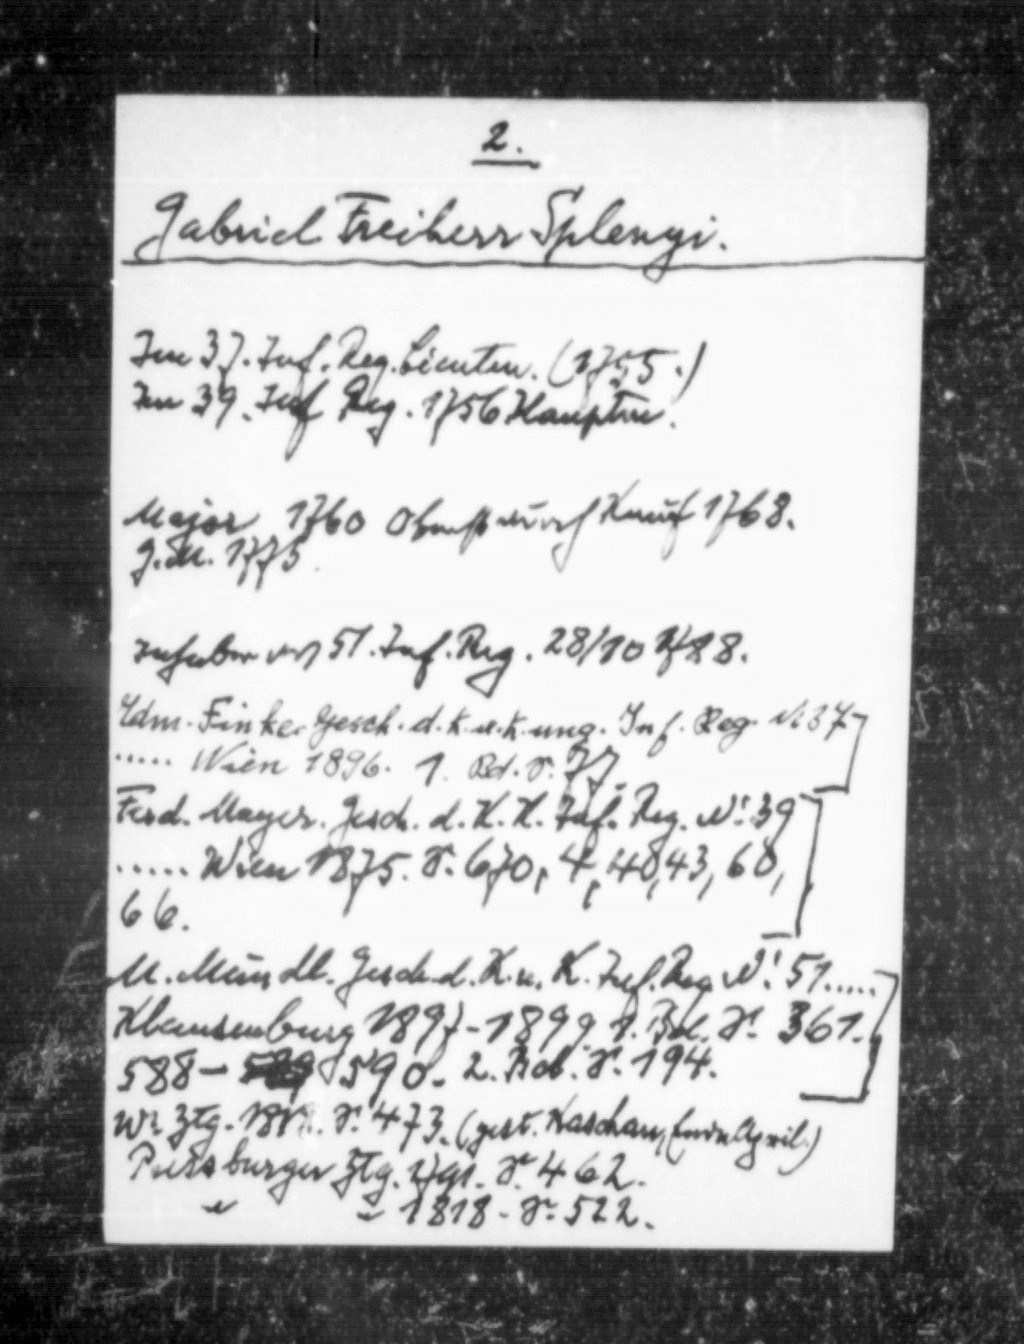 2.
Gabriel Freiherr Splenyi.
Im 37. Inf. Reg. Lieuten. (1755.)
Im 39. Inf Reg. 1756 Hauptm.
Major 1760 Oberst durch Kauf 1768.
G.M. 1775
Inhaber des 51. Inf. Reg. 28/10 1788.
Edm. Finke. Gesch. d. k. u. k. ung. Inf. Reg. N: 37
..... Wien 1896. 1. Bd. S. 77.
Ferd. Mayer. Gesch. d. K. K. Inf. Reg. N: 39
..... Wien 1875. S. 670, 4, 40, 43, 60,
66.
M. Maendl. Gesch. d. K. u. K. Inf. Reg N: 51.....
Klausenburg 1897-1899 1. Bd. S. 361.
588- 590. 2. Bd. S. 194.
Wr. Ztg. S. 473. (gest. Kaschau, Ende April.)
Pressburger Ztg. S. 462.
" " 1818 - S. 522.